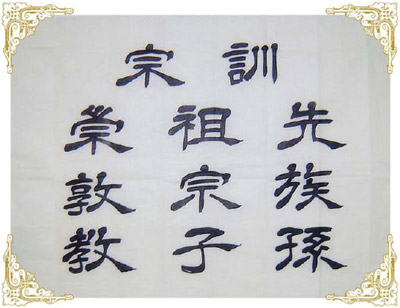 宗訓
崇祖先
敦宗族
教子孫